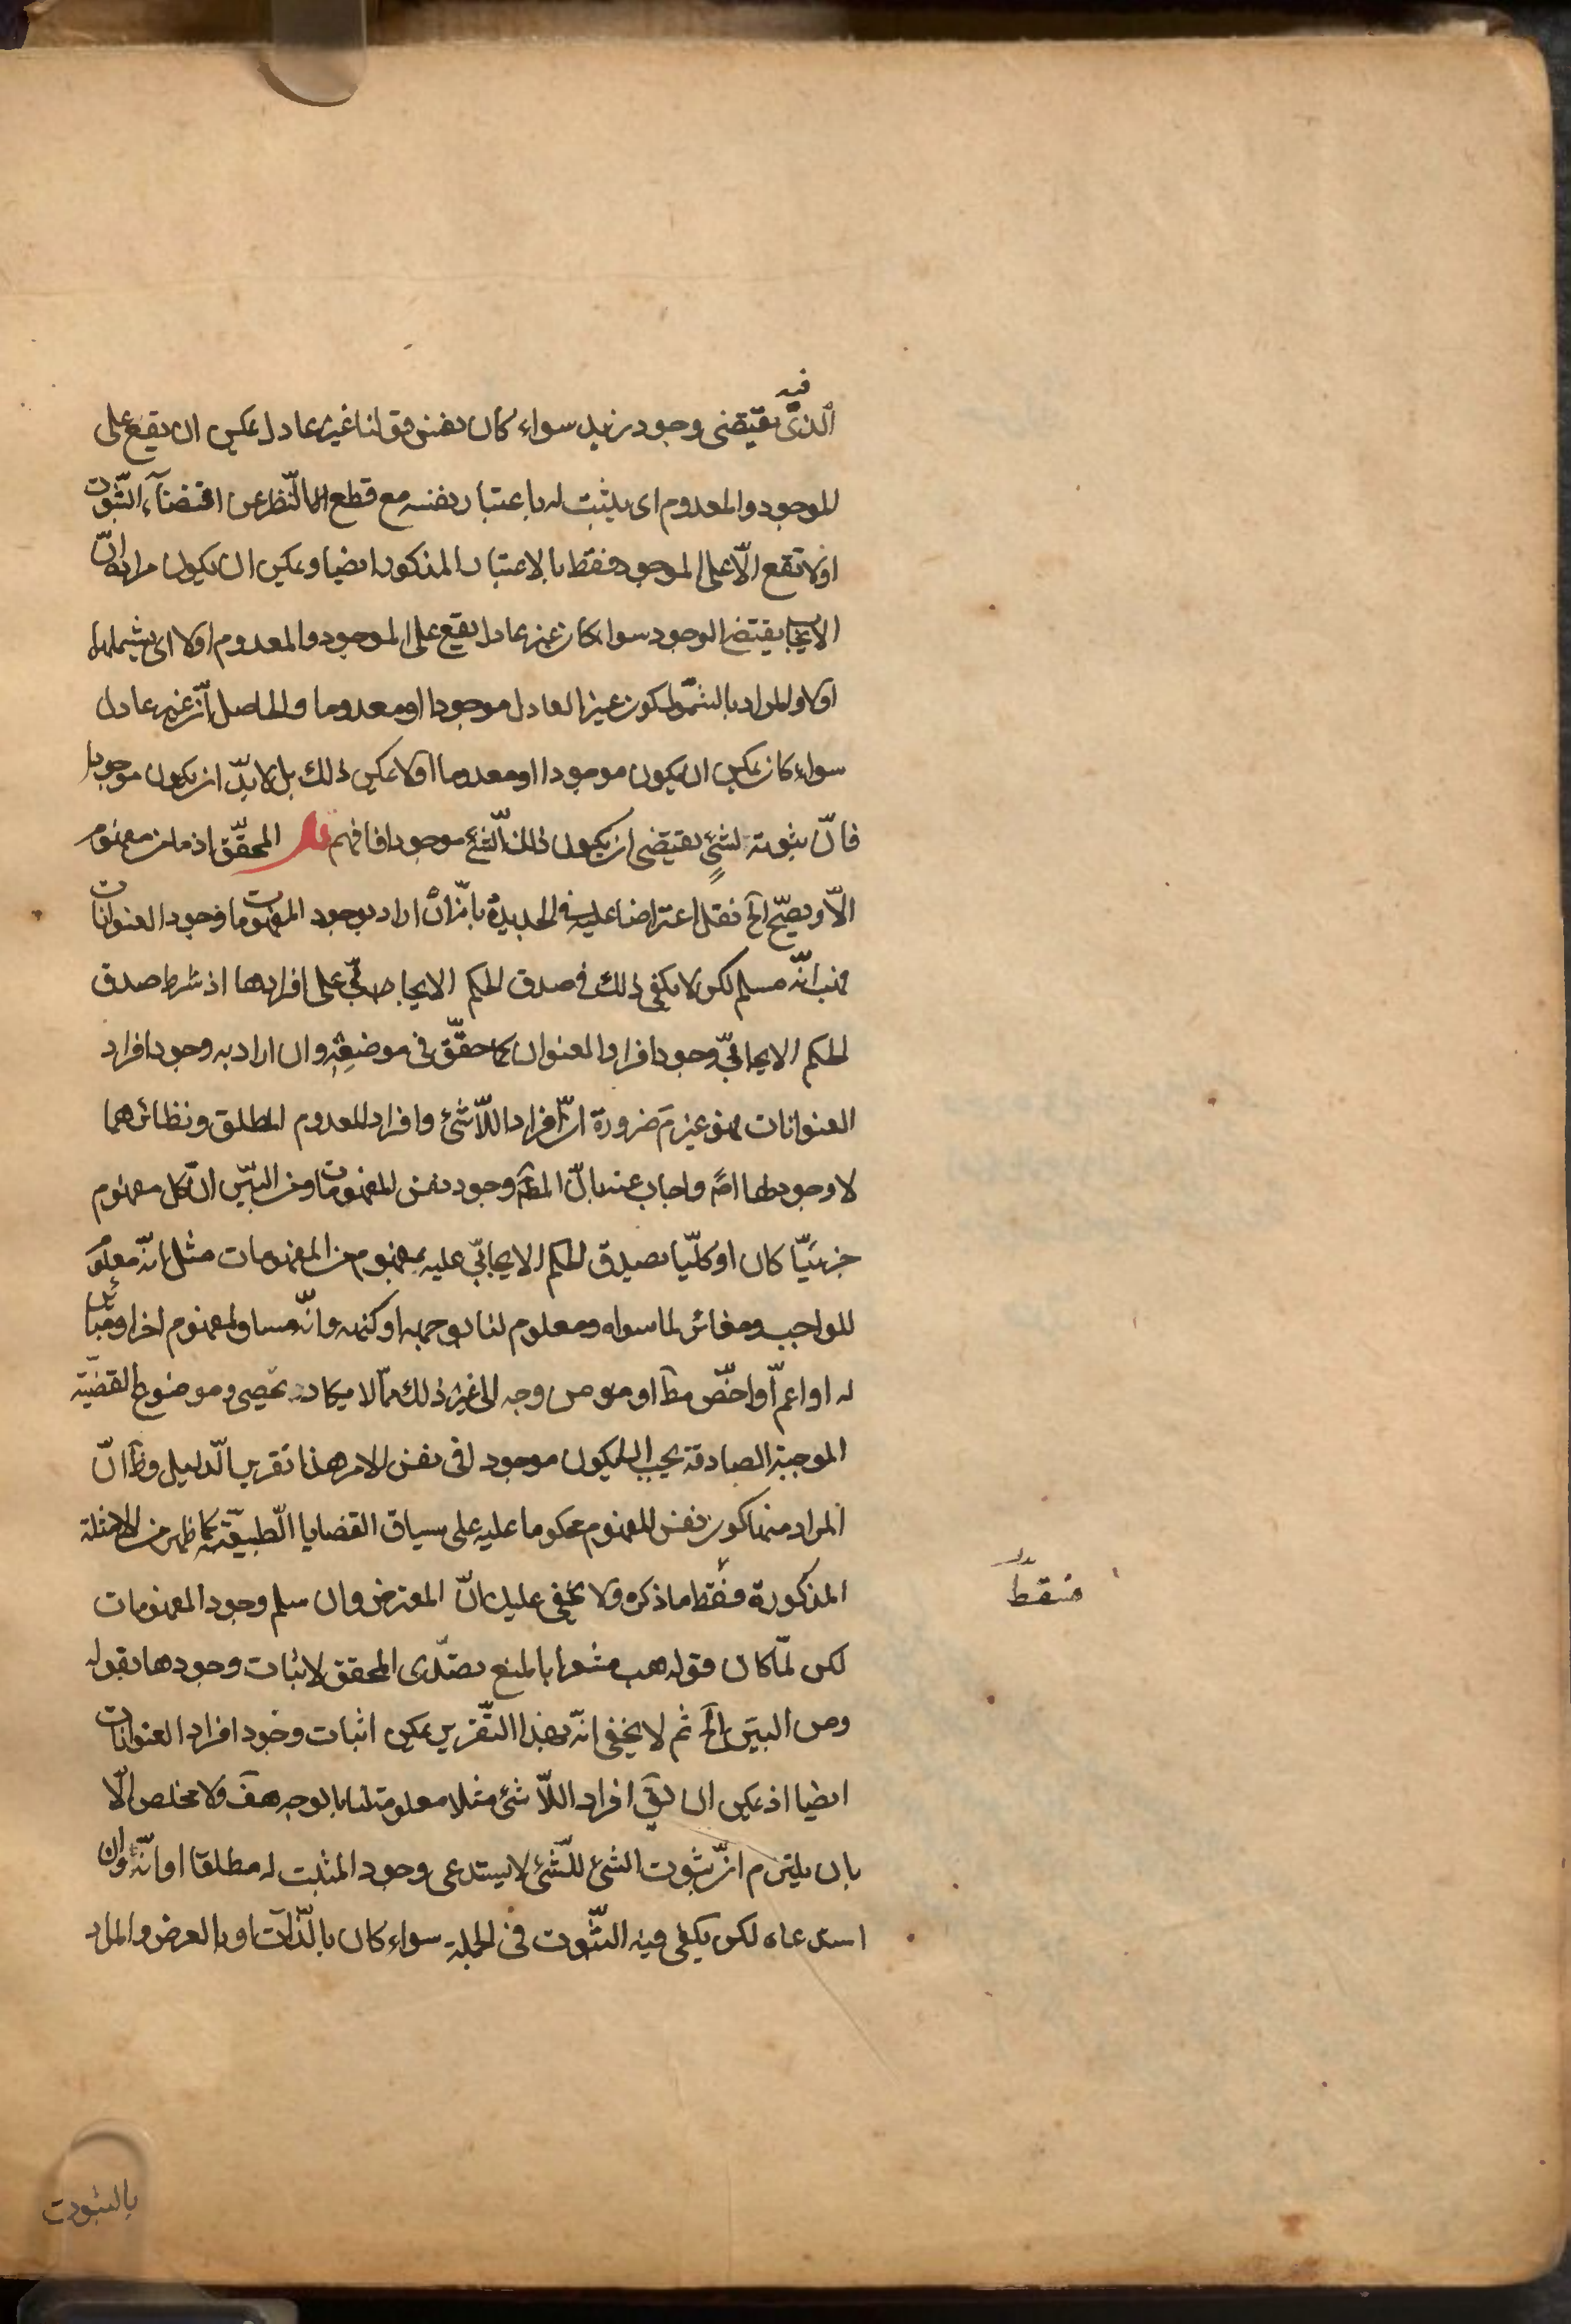 فيه
الذى يقتضى وجود زيد سواء كان نفس قولنا غير عادل يمكن ان يقع على
الموجود والمعدوم اى يثبت له باعتبار نفسه مع قطع النظر عن اقتضآء الثبوت
اولا تقع الّا على الموجود فقط بالاعتبار المذكور ايضا ويمكن ان يكون مراده انّ
الايجاب يقتضى الوجود سواء كان غير عادل يقع على الموجود والمعدوم اولا اى يشملهما
اولا والمراد بالشمول كون غير العادل موجودا او معدوما والحاصل انّ غير عادل
سواء كان يمكن ان يكون موجودا او معدوما اولا يمكن ذلك بل لا بدّ ان يكون موجودا
فانّ ثبوته لشئٍ يقتضى ان يكون ذلك الشئ موجودا فافهم قال المحقّق اذ ما من مفهوم
الّا ويصحّ الخ نقل اعتراضا عليه فى الجديدة بانّه ان اراد بوجود المفهومات وجود العنوانات
فهب انّه مسلم لكن لا يكفى ذلك فى صدق الحكم الايجابىّ على افرادها اذ شرط صدق
الحكم الايجابىّ وجود افراد العنوان كما حقّق فى موضعه وان اراد به وجود افراد
العنوانات فهو غير مَ ضرورة انّ افراد اللّاشئ وافراد المعدوم المطلق ونظائرهما
لا وجود لها اصً واجاب عنه بانّ المط وجود نفس المفهومات ومن البيّن انّ كل مفهوم
جزئيّا كان او كلّيا يصدق الحكم الايجابىّ عليه بمفهوم من المفهومات مثل انّه معلوم
للواجب ومغائر لما سواه ومعلوم لنا بوجهه او كنهه وانّه مساو لمفهوم اخر او مبائن
له او اعمّ او اخصّ مطآ او من وجه الى غير ذلك ممّا لا يكاد يحصى وموضوع القضيّة
الموجبة الصادقة يجب ان يكون موجودا فى نفس الامر هذا تقرير الدليل وظ انّ
المراد منها كون نفس المفهوم محكوما عليه على سياق القضايا الطبيعيّة كما ظهر من الامثلة
المذكورة فسقط ما ذكره ولا يخفى عليك انّ المعترض وان سلم وجود المفهومات
لكن لمّا كان قوله هب مشعرا بالمنع تصدّى المحقق لاثبات وجودها بقوله
ومن البيّن الخ ثم لا يخفى انّه بهذا التّقرير يمكن اثبات وجود افراد العنوانات
ايضا اذ يمكن ان يق افراد اللّاشئ مثلا معلومة لنا بالوجه هف ولا مخلص الّا
بان يلتزم انّ ثبوت الشئ للشّئ لا يستدعى وجود المثبت له مطلقا او انّه وان
استدعاه لكن يكفى فيه الثّبوت فى الجملة سواء كان بالذّات او بالعرض والمراد
بالثبوت